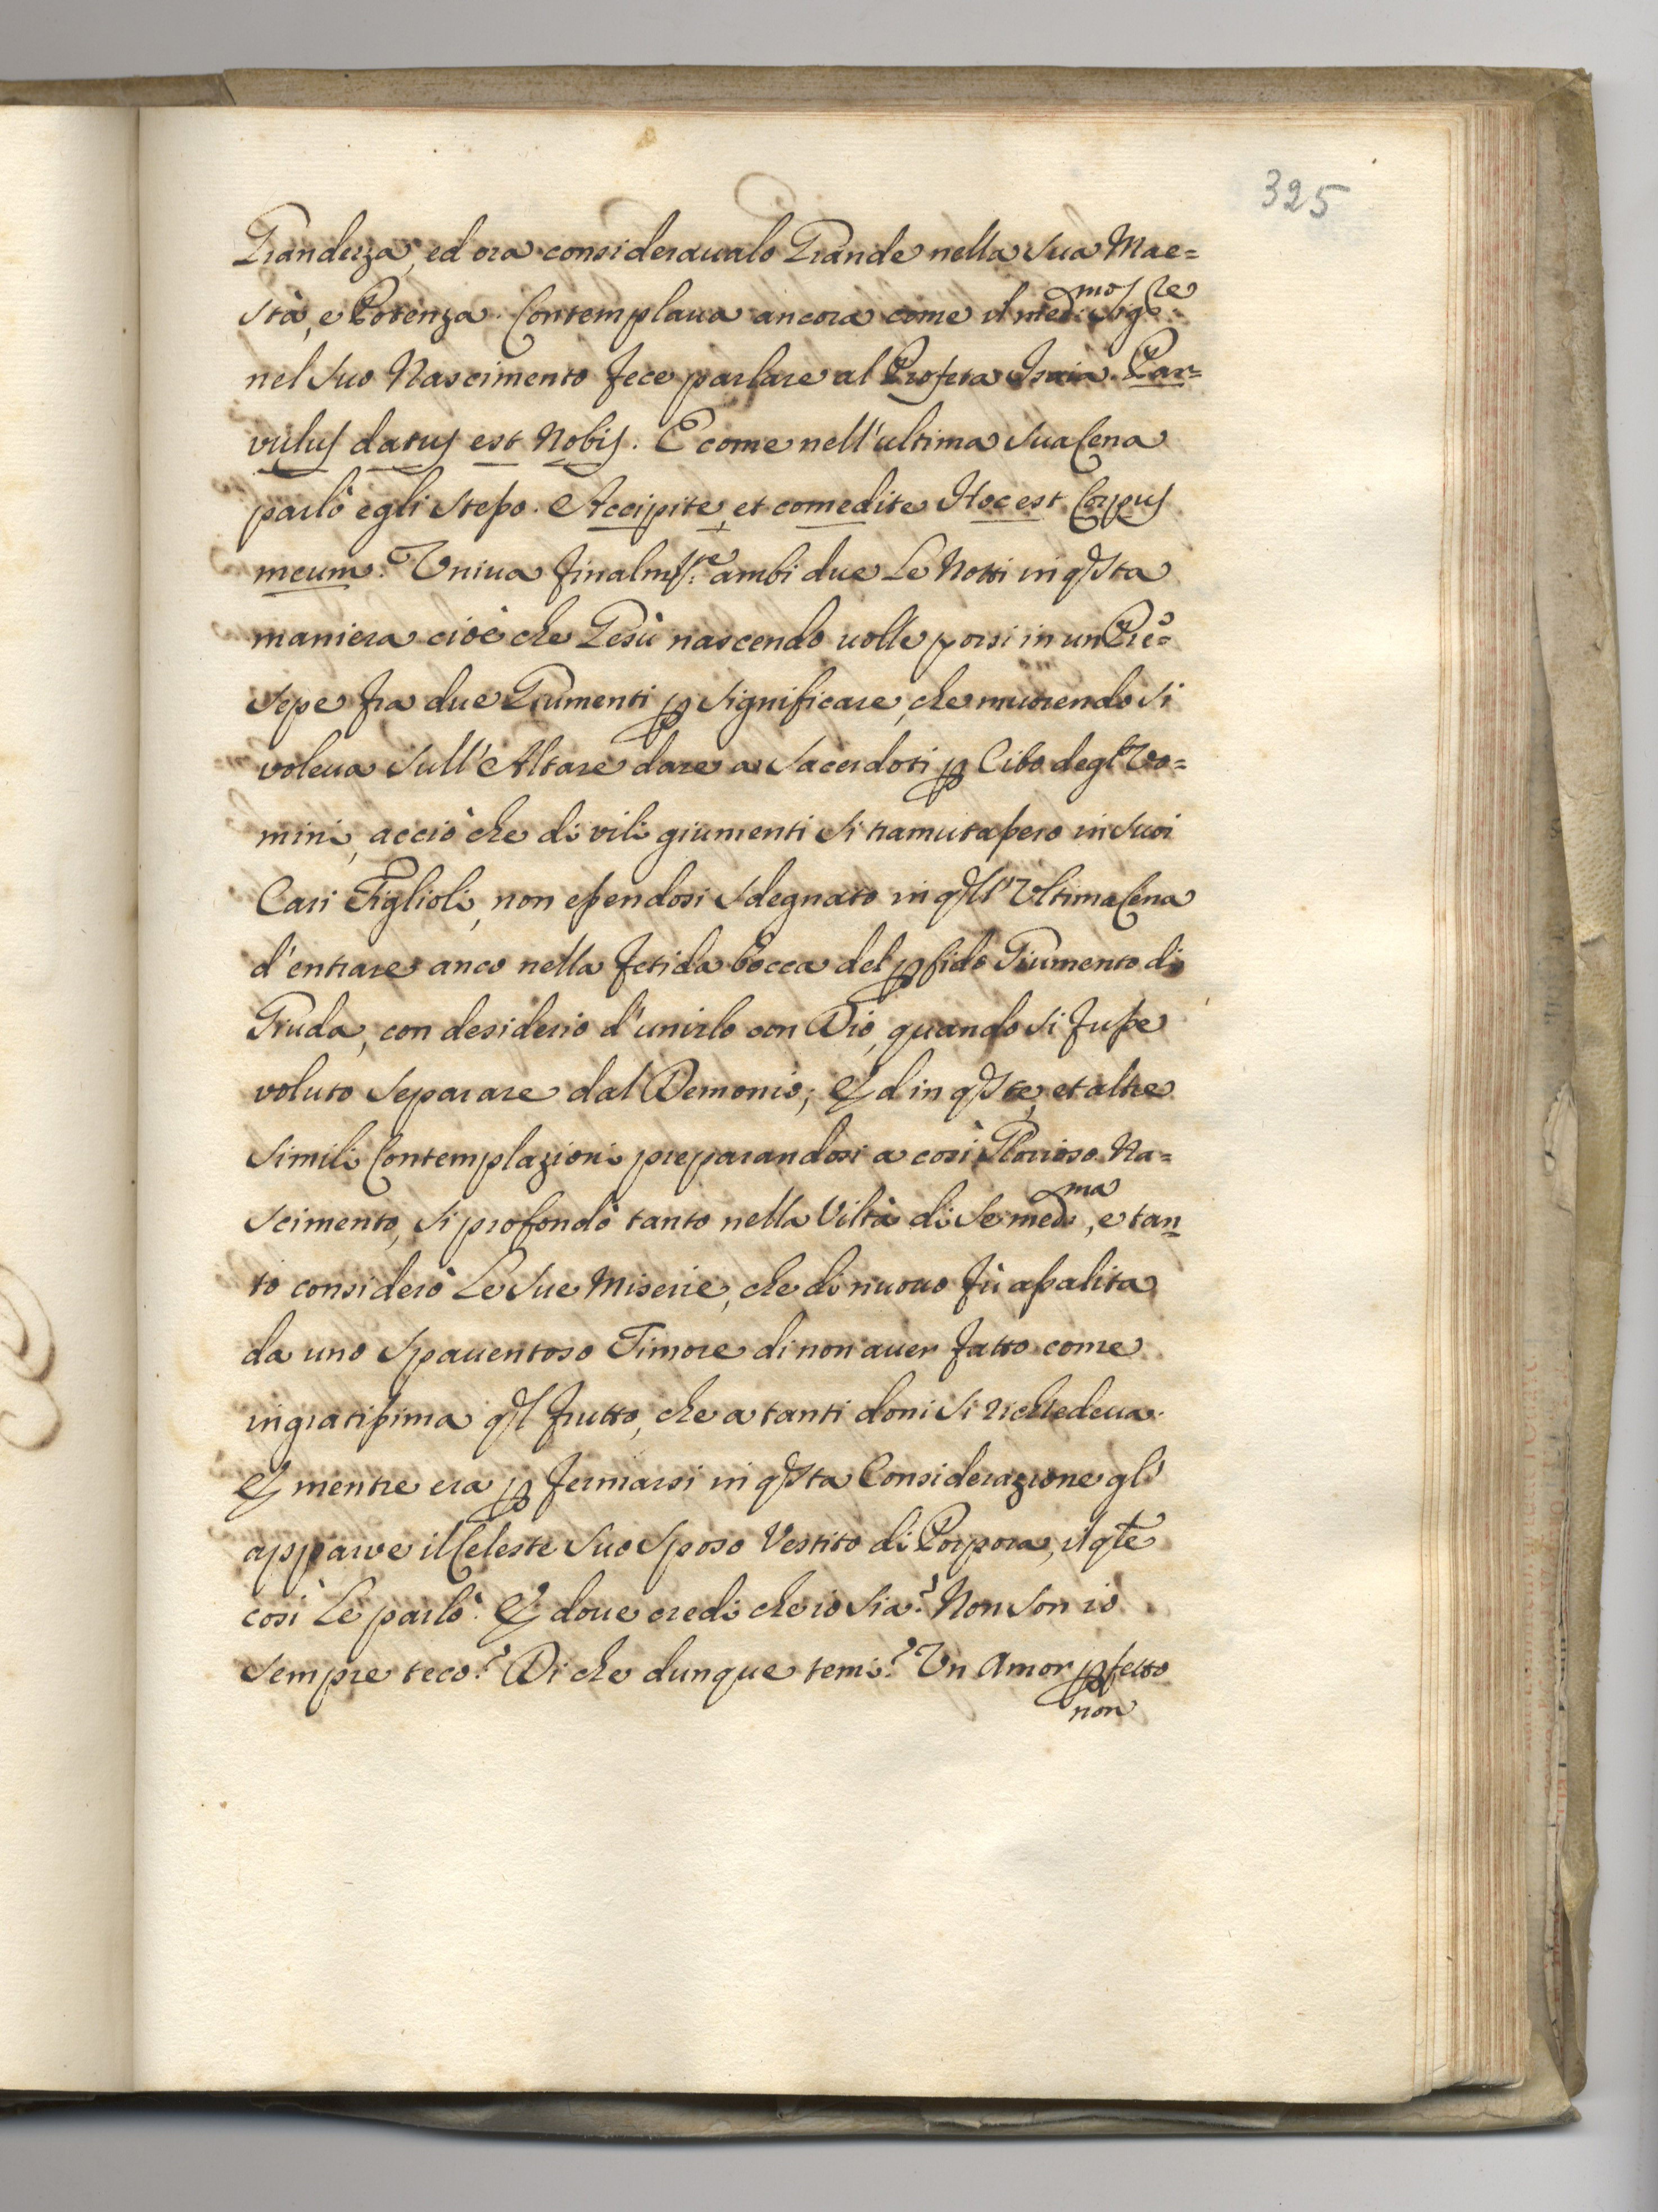 325
Grandezza, ed ora consideravalo Grande nella sua Mae=
stà, e Potenza. Contemplaua ancora come il med.mo Sig.re
nel suo Nascimento fece parlare al Profeta Isaia. Par=
vulus datus est Nobis. E come nell'ultima sua Cena
parlò egli stesso. Accipite, et comedite Hoc est Corpus
meum. Vniua finalm.te ambi due Le Notti in q̃sta
maniera cioè che Gesù nascendo uolle porsi in un Pre=
sepe fra due Giumenti ꝑ significare, che morendo si
voleua sull'Altare dare a Sacerdoti ꝑ Cibo degl'Vo=
mini, acciò che di vili giumenti si tramutassero in suoi
Cari Figlioli, non essendosi sdegnato in q̃ll'Vltima Cena
d'entrare anco nella fetida bocca del ꝑfido Giumento di
Giuda, con desiderio d'unirlo con Dio, quando si fusse
voluto separare dal Demonio; Ed in q̃ste, et altre
simili Contemplazioni preparandosi a così Glorioso Na=
scimento, si profondò tanto nella Viltà di se med.ma, e tan=
to considerò Le sue Miserie, che di nuouo fù assalita
da uno spauentoso Timore di non auer fatto come
ingratissima q̃l frutto, che a tanti doni si richiedeua.
E mentre era ꝑ fermarsi in q̃sta Considerazione gl'
apparve il Celeste suo Sposo Vestito di Porpora, il q̃le
così Le parlò. E doue credi che io sia? Non son io
sempre teco? Di che dunque temi? Vn Amor ꝑfetto
non